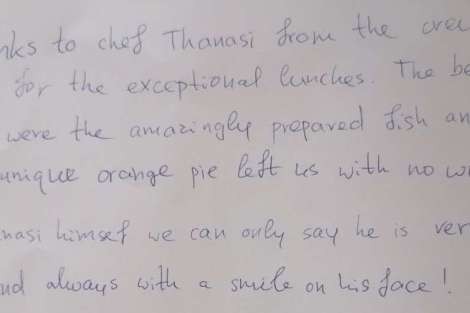 nks to chef Thanasi from the crew
for the exceptional lunches. The be
were the amazingly prepared fish an
unique orange pie left us with no wo
nasi himself we can only say he is ver
nd always with a smile on his face!